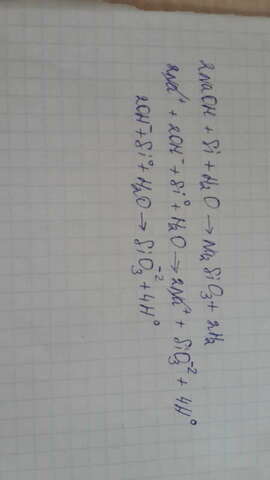 2NaOH + Si + H₂O → Na₂SiO₃ + 2H₂
2Na⁺ + 2OH⁻ + Si⁰ + H₂O → 2Na⁺ + SiO₃⁻² + 4H⁰
2OH⁻ + Si⁰ + H₂O → SiO₃⁻² + 4H⁰